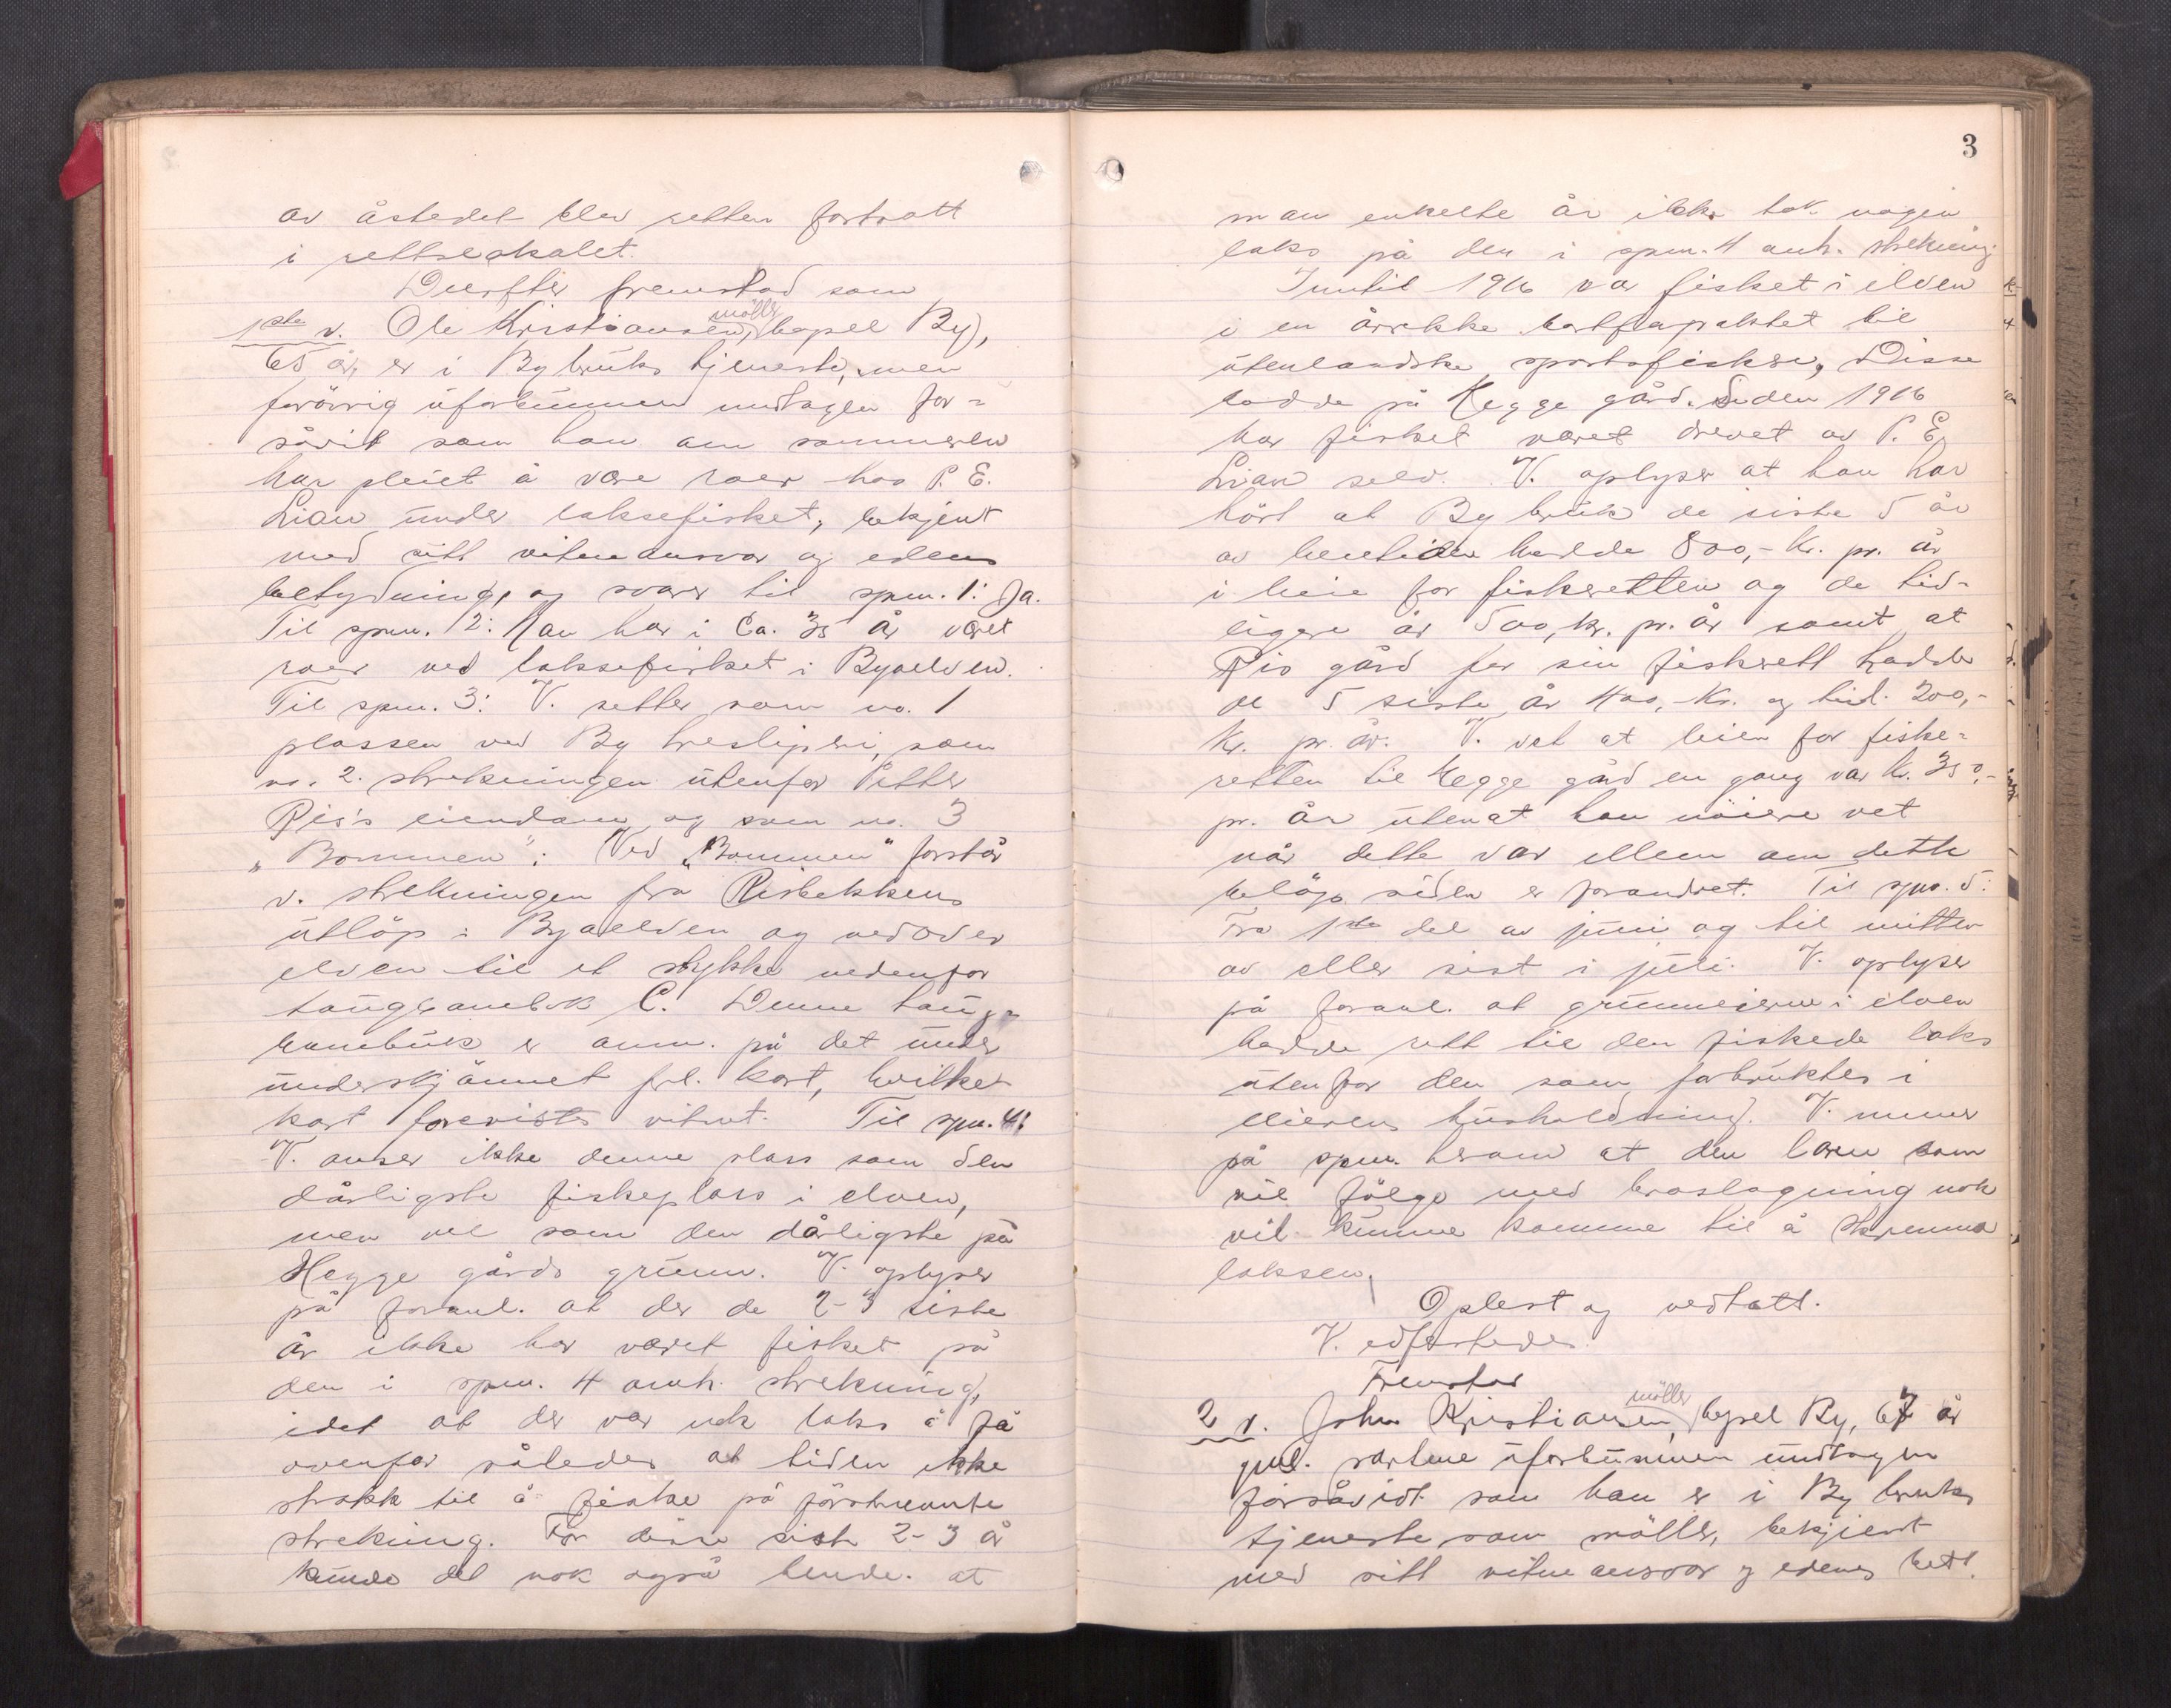 av åstedet blev retten fortsatt
i rettslokalet.
Derefter fremstod som
1ste v. Ole Kristiansen, möller, bopel By,
65 år, er i By bruks tjeneste, men
forövrig uforbunnen undtagen for=
såvit som han om sommeren
har pleiet å være roer hos P. E.
Lian under laksefisket, bekjent
med sitt vitneansvar og edens
betydning, og svarer til spm. 1: Ja.
Til spm. 2: Han har i ca. 35 år været
roer ved laksefisket i Byaelven.
Til spm. 3: V. setter som no. 1
plassen ved By tresliperi, som
no. 2. strekningen utenfor Petter
Ris's eiendom og som no. 3
„Bommen": Ved „Bommen" forstår
v. strekningen fra Risbekkens
utlöp i Byaelven og nedover
elven til et stykke nedenfor
C. Denne
er anm. på det under
underskjönnet frl. kart, hvilket
kart forevistes vitnet. Til spm. 4:
V. anser ikke denne plass som den
dårligste fiskeplass i elven,
men vel som den dårligste på
Hegge gårds grunn. V. oplyser
på foranl. at der de 2-3 siste
år ikke har været fisket på
den i spm. 4 omh. strekning,
idet at der var nok laks å få
ovenfor således at tiden ikke
strakk til å fiske på förstnevnte
strekning. För disse siste 2-3 år
kunde det nok også hende at
3
man enkelte år ikke tok nogen
laks på den i spm. 4 omh. strekning
Inntil 1916 var fisket i elven
i en årrekke bortforpaktet til
utenlandske sportsfiskere, Disse
bodde på Hegge gård. Siden 1916
har fisket været drevet av P. E.
Lian selv. V. oplyser at han har
hört at By bruk de siste 5 år
av leietiden hadde 800,- kr. pr. år
i leie for fiskeretten og de tid-
ligere år 500, kr. pr. år samt at
Ris gård for sin fiskerett hadde
de 5 siste år 400,- Kr. og tid. 200,-
Kr. pr. år. V. vet at leien for fiske=
retten til Hegge gård en gang var kr. 350,-
pr. år uten at han nöiere vet
når dette var eller om dette
belöp siden er forandret. Til spm. 5:
Fra 1ste del av juni og til mitten
av eller sist i juli. V. oplyser
på foranl. at grunneierne i elven
hadde rett til den fiskede laks
utenfor den som forbruktes i
leierens husholdning. V. mener
på spm. herom at den larm som
vil fölge med kraslagning nok
vil kunne komme til å skremme
laksen.
Oplest og vedtatt.
V. edfestedes.
Fremstod
2 v. John Kristiansen, möller, bopel By, 67 år
gml. partene uforbunnen undtagen
forsåvidt som han er i By bruks
tjeneste som möller, bekjent
med sitt vitneansvar og edens bet.